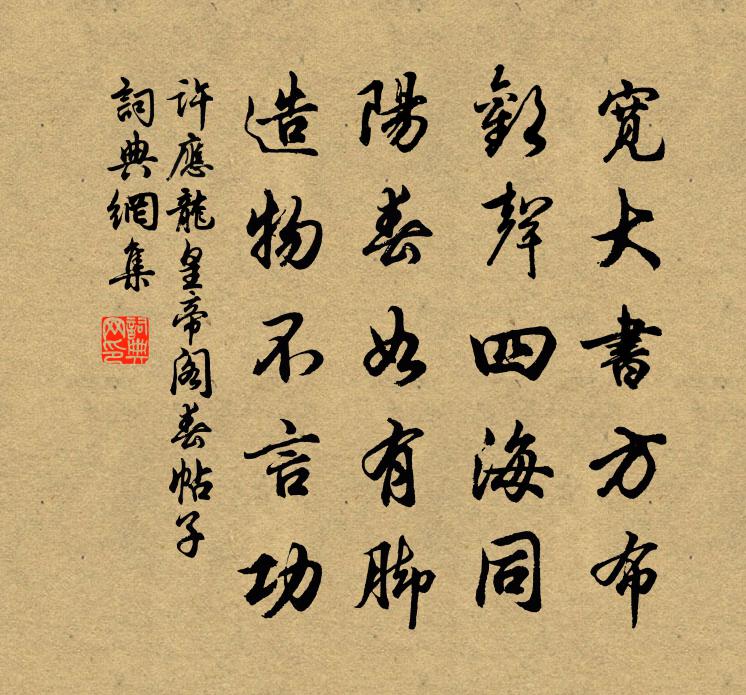 寬大書方布
歡聲四海同
陽春如有脚
造物不言功
許應龍皇帝閣春帖子
詞典網集
詞典網印